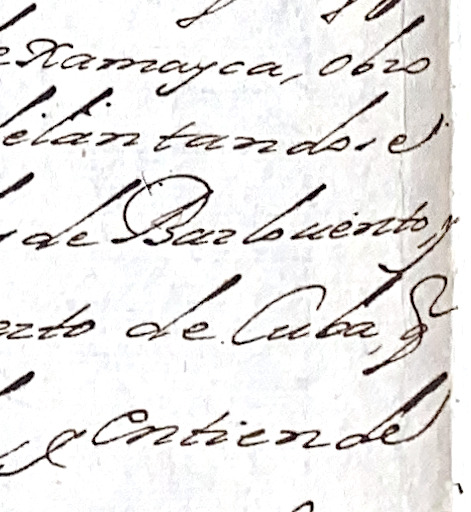 e Xamayca, obro
elantandose
de Barlouento, y
erto de Cuba, q
entiende